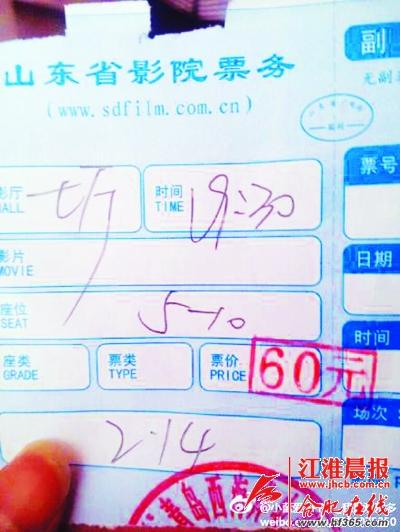 山东省影院票务
(www.sdfilm.com.cn)
副
影厅
HALL
时间
TIME
19:30
票号
影片
MOVIE
日期
座位
SEAT
5-10
座类
GRADE
票类
TYPE
票价
PRICE
60元
时间
场次
2.14
江淮晨报
合肥在线
www.hf365.com